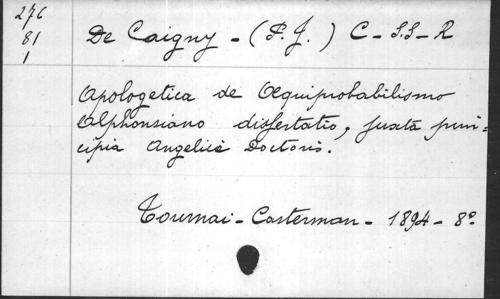 276
81
1
De Caigny - (P. J.) C - S.S - R
Apologetica de Æquiprobabilismo
Alphonsiano dissertatio, juxta prin-
cipia Angelici Doctoris.
Tournai - Casterman - 1894 - 8º